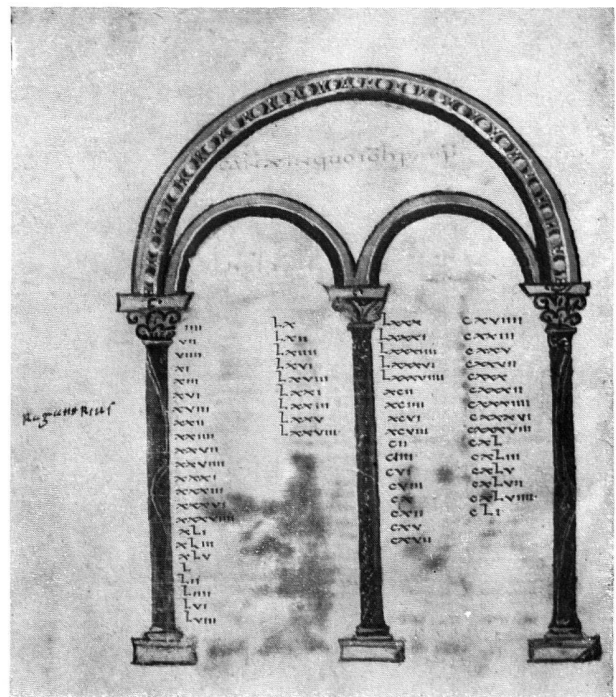 iiii
vii
viiii
xi
xiii
xvi
xviii
xxii
xxiiii
xxvii
xxviiii
xxxi
xxxiii
xxxvi
xxxviiii
xLi
xLiii
xLv
L
Lii
Liiii
Lvi
Lviii
Lx
Lxii
Lxiiii
Lxvi
Lxviii
Lxxi
Lxxiii
Lxxv
Lxxviii
Lxxx
Lxxxi
Lxxxiiii
Lxxxvi
Lxxxviiii
xcii
xciiii
xcvi
xcviii
cii
ciiii
cvi
cviii
cx
cxii
cxv
cxvii
cxviiii
cxxiii
cxxv
cxxvii
cxxx
cxxxii
cxxxiiii
cxxxvi
cxxxviii
cxL
cxLiii
cxLv
cxLvii
cxLviiii
cLi